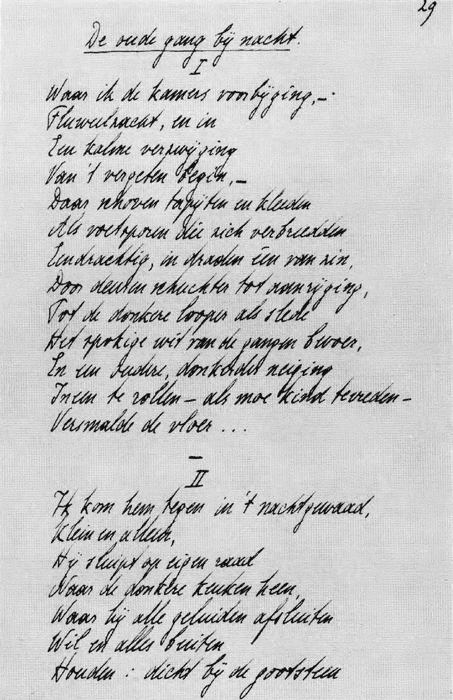 29
De oude gang bij nacht.
I
Waar ik de kamers voorbijging, –
Fluweelzacht, en in
Een kalme verzwijging
Van 't vergeten begin, –
Daar schoven tapijten en kleeden
Als voetsporen die zich verbreedden
Eendrachtig, in draden één van zin,
Door deuren schuchter tot aanrijging,
Tot de donkere looper als slede
Het spokige wit van de gangen bevoer,
En een oudere, donkerder neiging
Ineen te rollen – als moe kind tevreden –
Versmalde de vloer ...
–
II
Ik kom hem tegen in 't nachtgewaad,
Klein en alleen,
Hij sluipt op eigen raad
Naar de donkere keuken heen,
Waar hij alle geluiden afsluiten
Wil en alles buiten
Houden : dicht bij de gootsteen